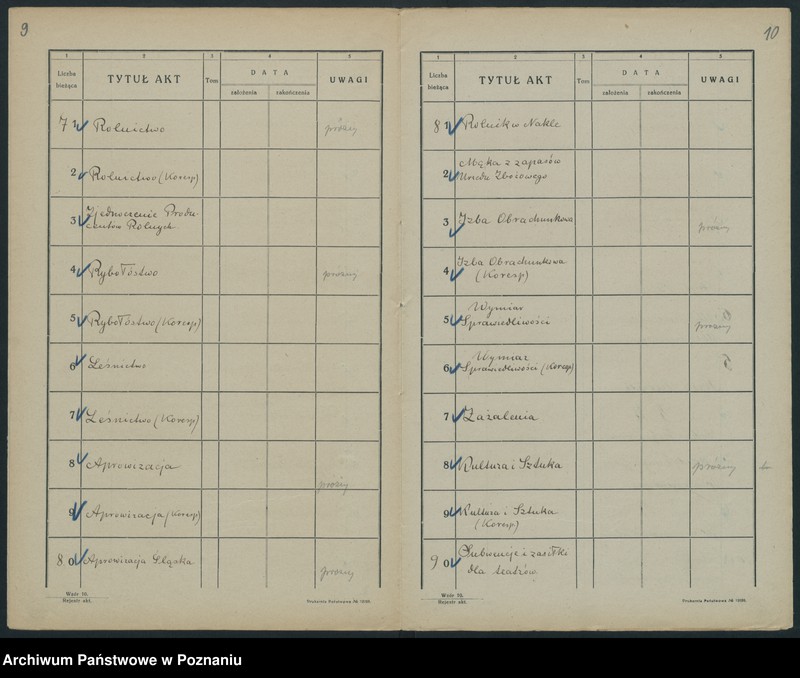 9
1 2 3 4 5
Liczba bieżąca TYTUŁ AKT Tom DATA UWAGI
założenia zakończenia
7 1 Rolnictwo próżny
2 Rolnictwo (Koresp)
3 Zjednoczenie Produ-
centów Rolnych
4 Rybołóstwo próżny
5 Rybołóstwo (Koresp)
6 Leśnictwo
7 Leśnictwo (Koresp)
8 Aprowizacja próżny
9 Aprowizacja (Koresp)
8 0 Aprowizacja Śląska próżny
Wzór 10.
Rejestr akt.
10
1 2 3 4 5
Liczba bieżąca TYTUŁ AKT Tom DATA UWAGI
założenia zakończenia
8 1 Rolnik w Nakle
2 Mąka z zapasów
Urzędu Zbożowego
3 Izba Obrachunkowa próżny
4 Izba Obrachunkowa
(Koresp)
5 Wymiar
Sprawiedliwości próżny
6 Wymiar
Sprawiedliwości (Koresp)
7 Zażalenia
8 Kultura i Sztuka próżny
9 Kultura i Sztuka
(Koresp)
9 0 Subwencje i zasiłki
dla teatrów
Wzór 10.
Rejestr akt.
Archiwum Państwowe w Poznaniu